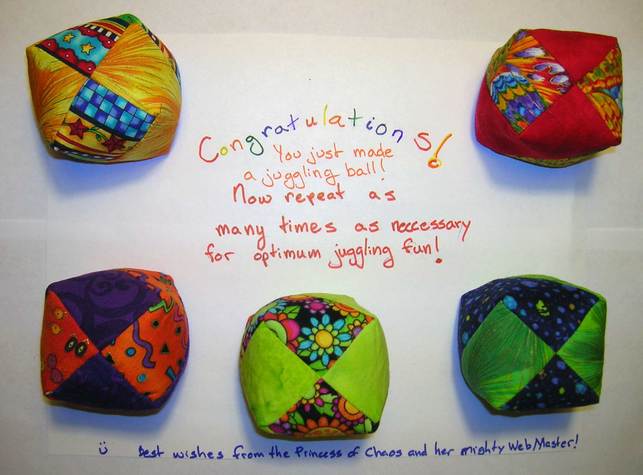 Congratulations!
You just made
a juggling ball!
Now repeat as
many times as neccessary
for optimum juggling fun!
Best wishes from the Princess of Chaos and her mighty WebMaster!